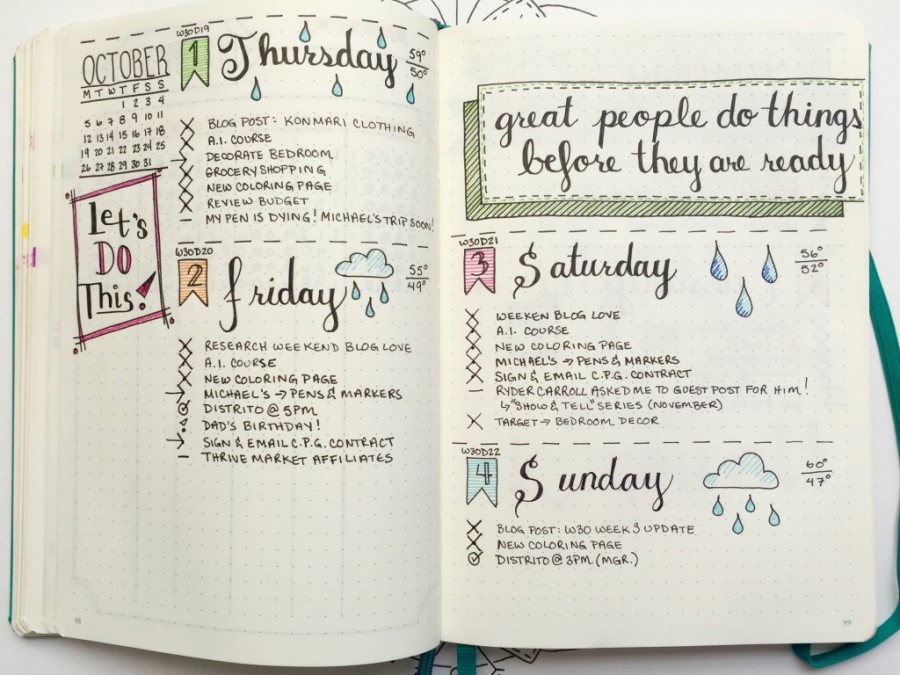 OCTOBER
M T W T F S S
1 2 3 4
5 6 7 8 9 10 11
12 13 14 15 16 17 18
19 20 21 22 23 24 25
26 27 28 29 30 31
Let's
DO
This!
W30D19
1 Thursday 59° 50°
X BLOG POST: KONMARI CLOTHING
X A.I. COURSE
→ DECORATE BEDROOM
X GROCERY SHOPPING
X NEW COLORING PAGE
X REVIEW BUDGET
– MY PEN IS DYING! MICHAEL'S TRIP SOON!
W30D20
2 friday 55° 49°
X RESEARCH WEEKEND BLOG LOVE
X A.I. COURSE
X NEW COLORING PAGE
→ MICHAEL'S → PENS & MARKERS
DISTRITO @ 5PM
DAD'S BIRTHDAY!
→ SIGN & EMAIL C.P.G. CONTRACT
– THRIVE MARKET AFFILIATES
98
great people do things
before they are ready
W30D21
3 Saturday 56° 52°
X WEEKEN BLOG LOVE
X A.I. COURSE
X NEW COLORING PAGE
X MICHAEL'S → PENS & MARKERS
X SIGN & EMAIL C.P.G. CONTRACT
– RYDER CARROLL ASKED ME TO GUEST POST FOR HIM!
↳ "SHOW & TELL" SERIES (NOVEMBER)
X TARGET → BEDROOM DECOR
W30D22
4 Sunday 60° 47°
X BLOG POST: W30 WEEK 3 UPDATE
X NEW COLORING PAGE
DISTRITO @ 3PM (MGR.)
99